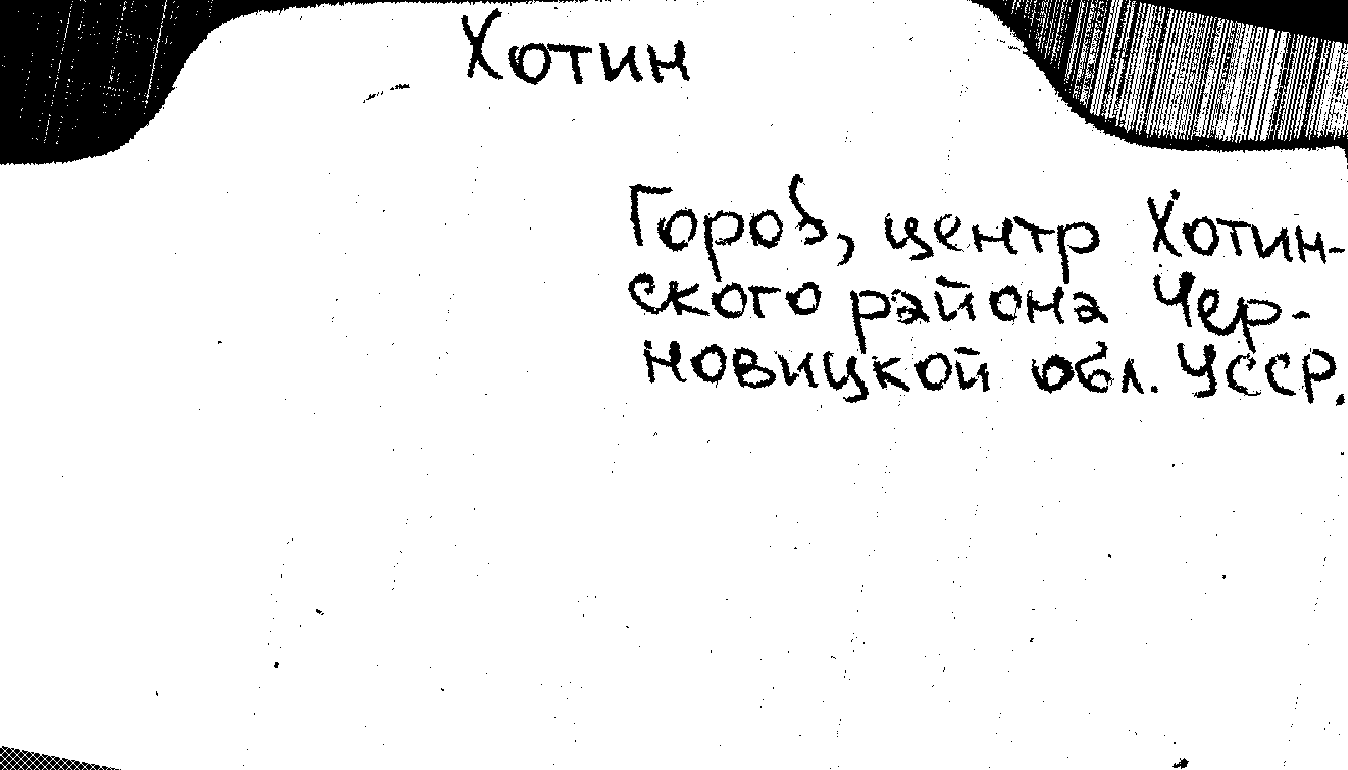 Хотин
Город, центр Хотин-
ского района Чер-
новицкой обл. УССР.